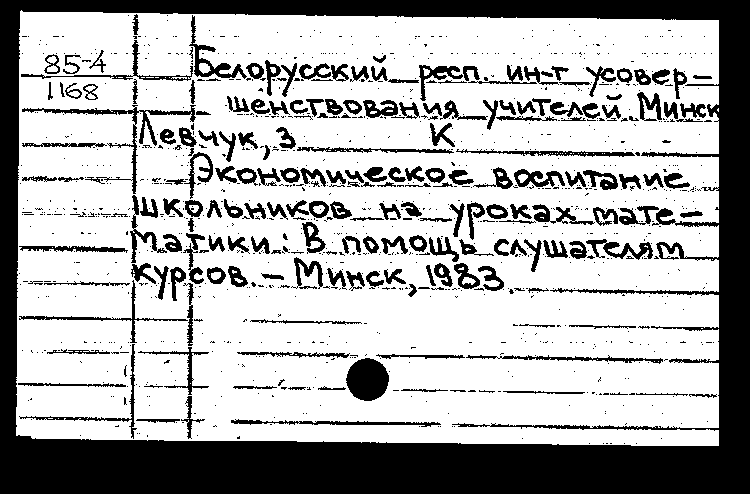 85-4
1168
Белорусский респ. ин-т усовер-
шенствования учителей. Минск
Левчук, З К
Экономическое воспитание
школьников на уроках мате-
матики: В помощь слушателям
курсов. - Минск, 1983.